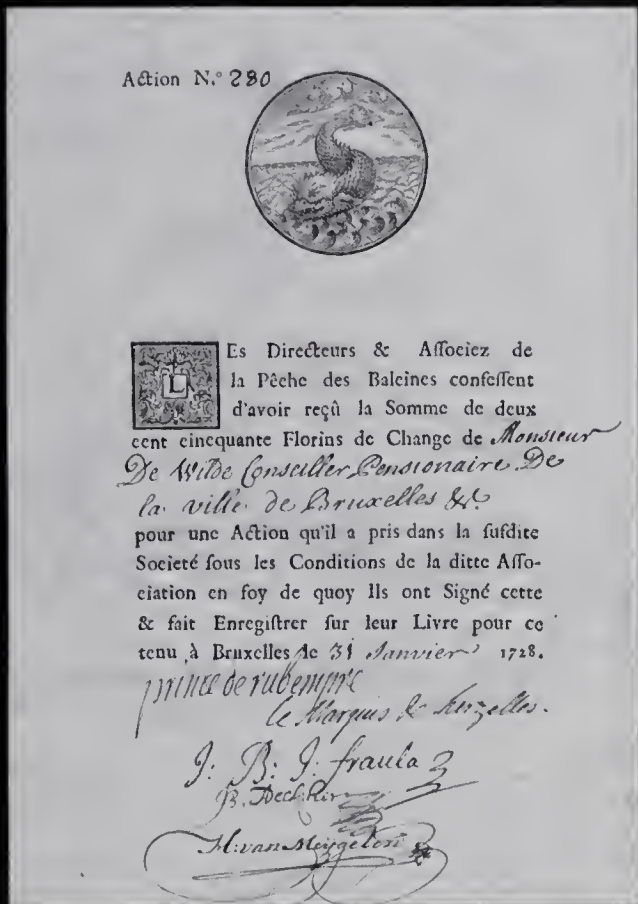 Action N.º 280
LEs Directeurs & Aſſociez de
la Pêche des Baleines confeſſent
d'avoir reçû la Somme de deux
cent cincquante Florins de Change de Monsieur
De Wilde Conseiller Pensionaire De
la ville de Bruxelles &ª
pour une Action qu'il a pris dans la ſuſdite
Societé ſous les Conditions de la ditte Aſſo-
ciation en foy de quoy Ils ont Signé cette
& fait Enregiſtrer ſur leur Livre pour ce
tenu à Bruxelles le 31 Janvier 1728.
prince de rubempré
le Marquis de
J: B: J: fraula
H: van